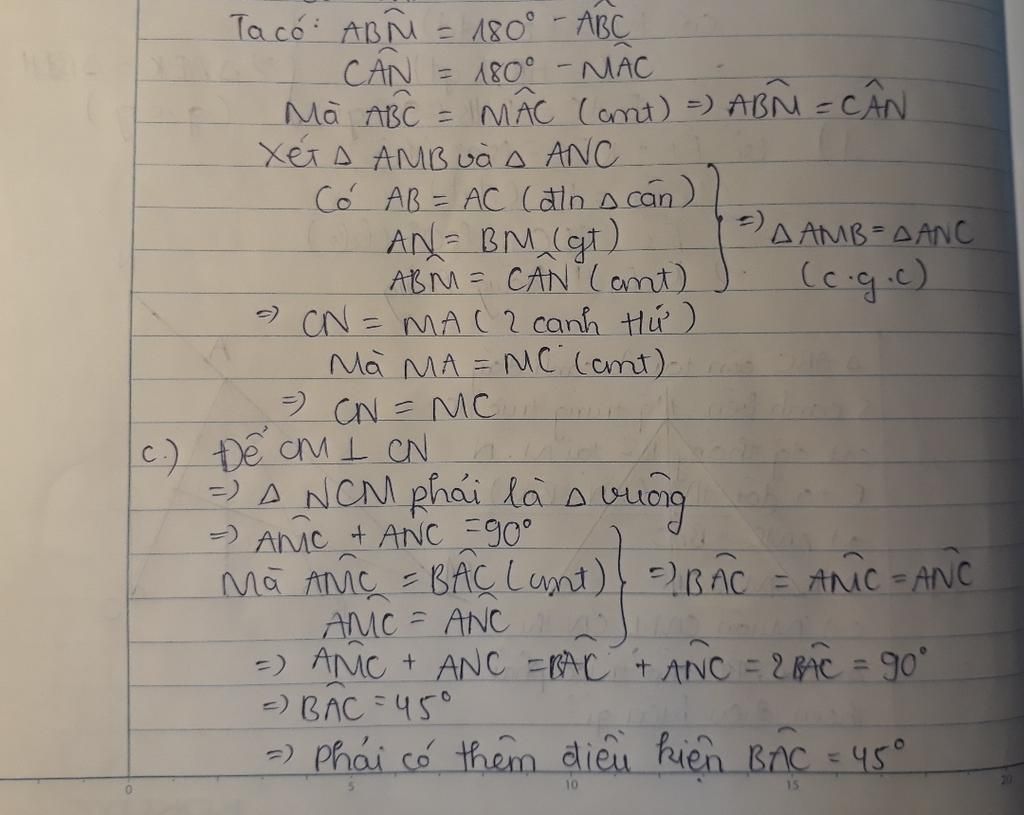 Ta có: ABM̂ = 180° - ABĈ
CÂN = 180° - MÂC
Mà ABĈ = MÂC (cmt) => ABM̂ = CÂN
Xét Δ AMB và Δ ANC
Có AB = AC (đ/n Δ cân)
AN = BM (gt)
ABM̂ = CÂN (cmt)
=> Δ AMB = Δ ANC
(c.g.c)
=> CN = MA (2 cạnh tứ)
Mà MA = MC (cmt)
=> CN = MC
c.) Để CM ⊥ CN
=> Δ NCM phải là Δ vuông
=> AM̂C + AN̂C = 90°
Mà AM̂C = BÂC (cmt)
AM̂C = AN̂C
=> BÂC = AM̂C = AN̂C
=> AM̂C + ANC = BÂC + AN̂C = 2BÂC = 90°
=> BÂC = 45°
=> phải có thêm điều kiện BÂC = 45°
0 5 10 15 20